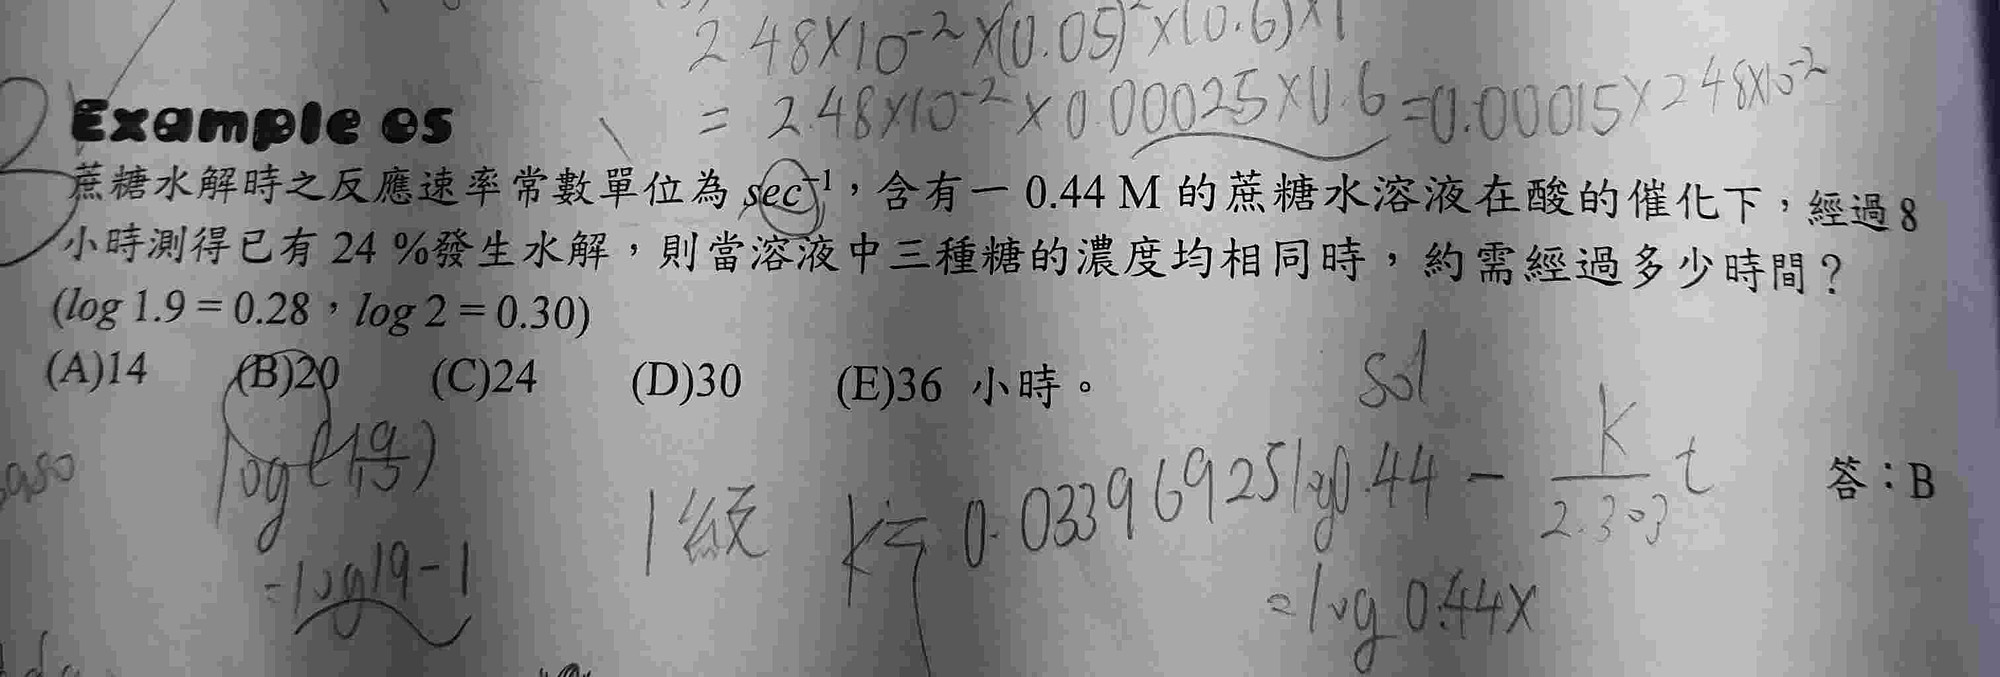 2.48×10⁻²×(0.05)²×(0.6)×1
= 2.48×10⁻²×0.00025×0.6=0.00015×2.48×10⁻²
Example 05
蔗糖水解時之反應速率常數單位為 sec⁻¹，含有一 0.44 M 的蔗糖水溶液在酸的催化下，經過 8
小時測得已有 24 %發生水解，則當溶液中三種糖的濃度均相同時，約需經過多少時間？
(log 1.9 = 0.28，log 2 = 0.30)
(A)14 (B)20 (C)24 (D)30 (E)36 小時。
sol
1級 k=0.03396925
log0.44 - k/2.303 t
=log 0.44x
=log19-1
答：B